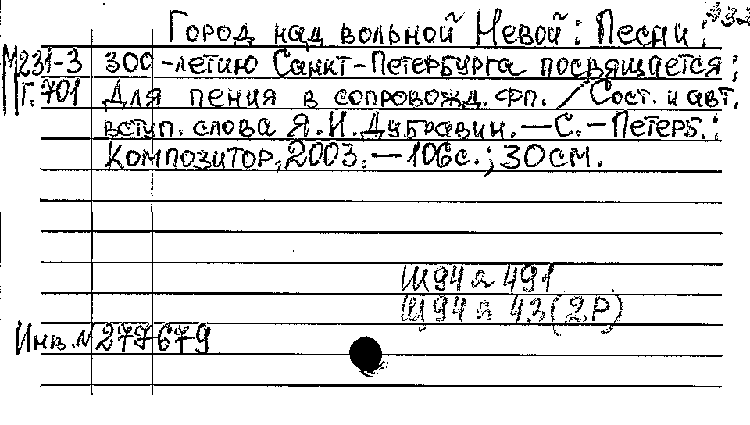 Город над вольной Невой: Песни;
М231-3 300-летию Санкт-Петербурга посвящается;
Г.701 Для пения в сопровожд. фп. / Сост. и авт.
вступ. слова Я.И.Дубравин. — С.-Петерб.:
Композитор, 2003. — 106с.; 30см.
Щ94я491
Щ94я43(2Р)
Инв.№ 277679